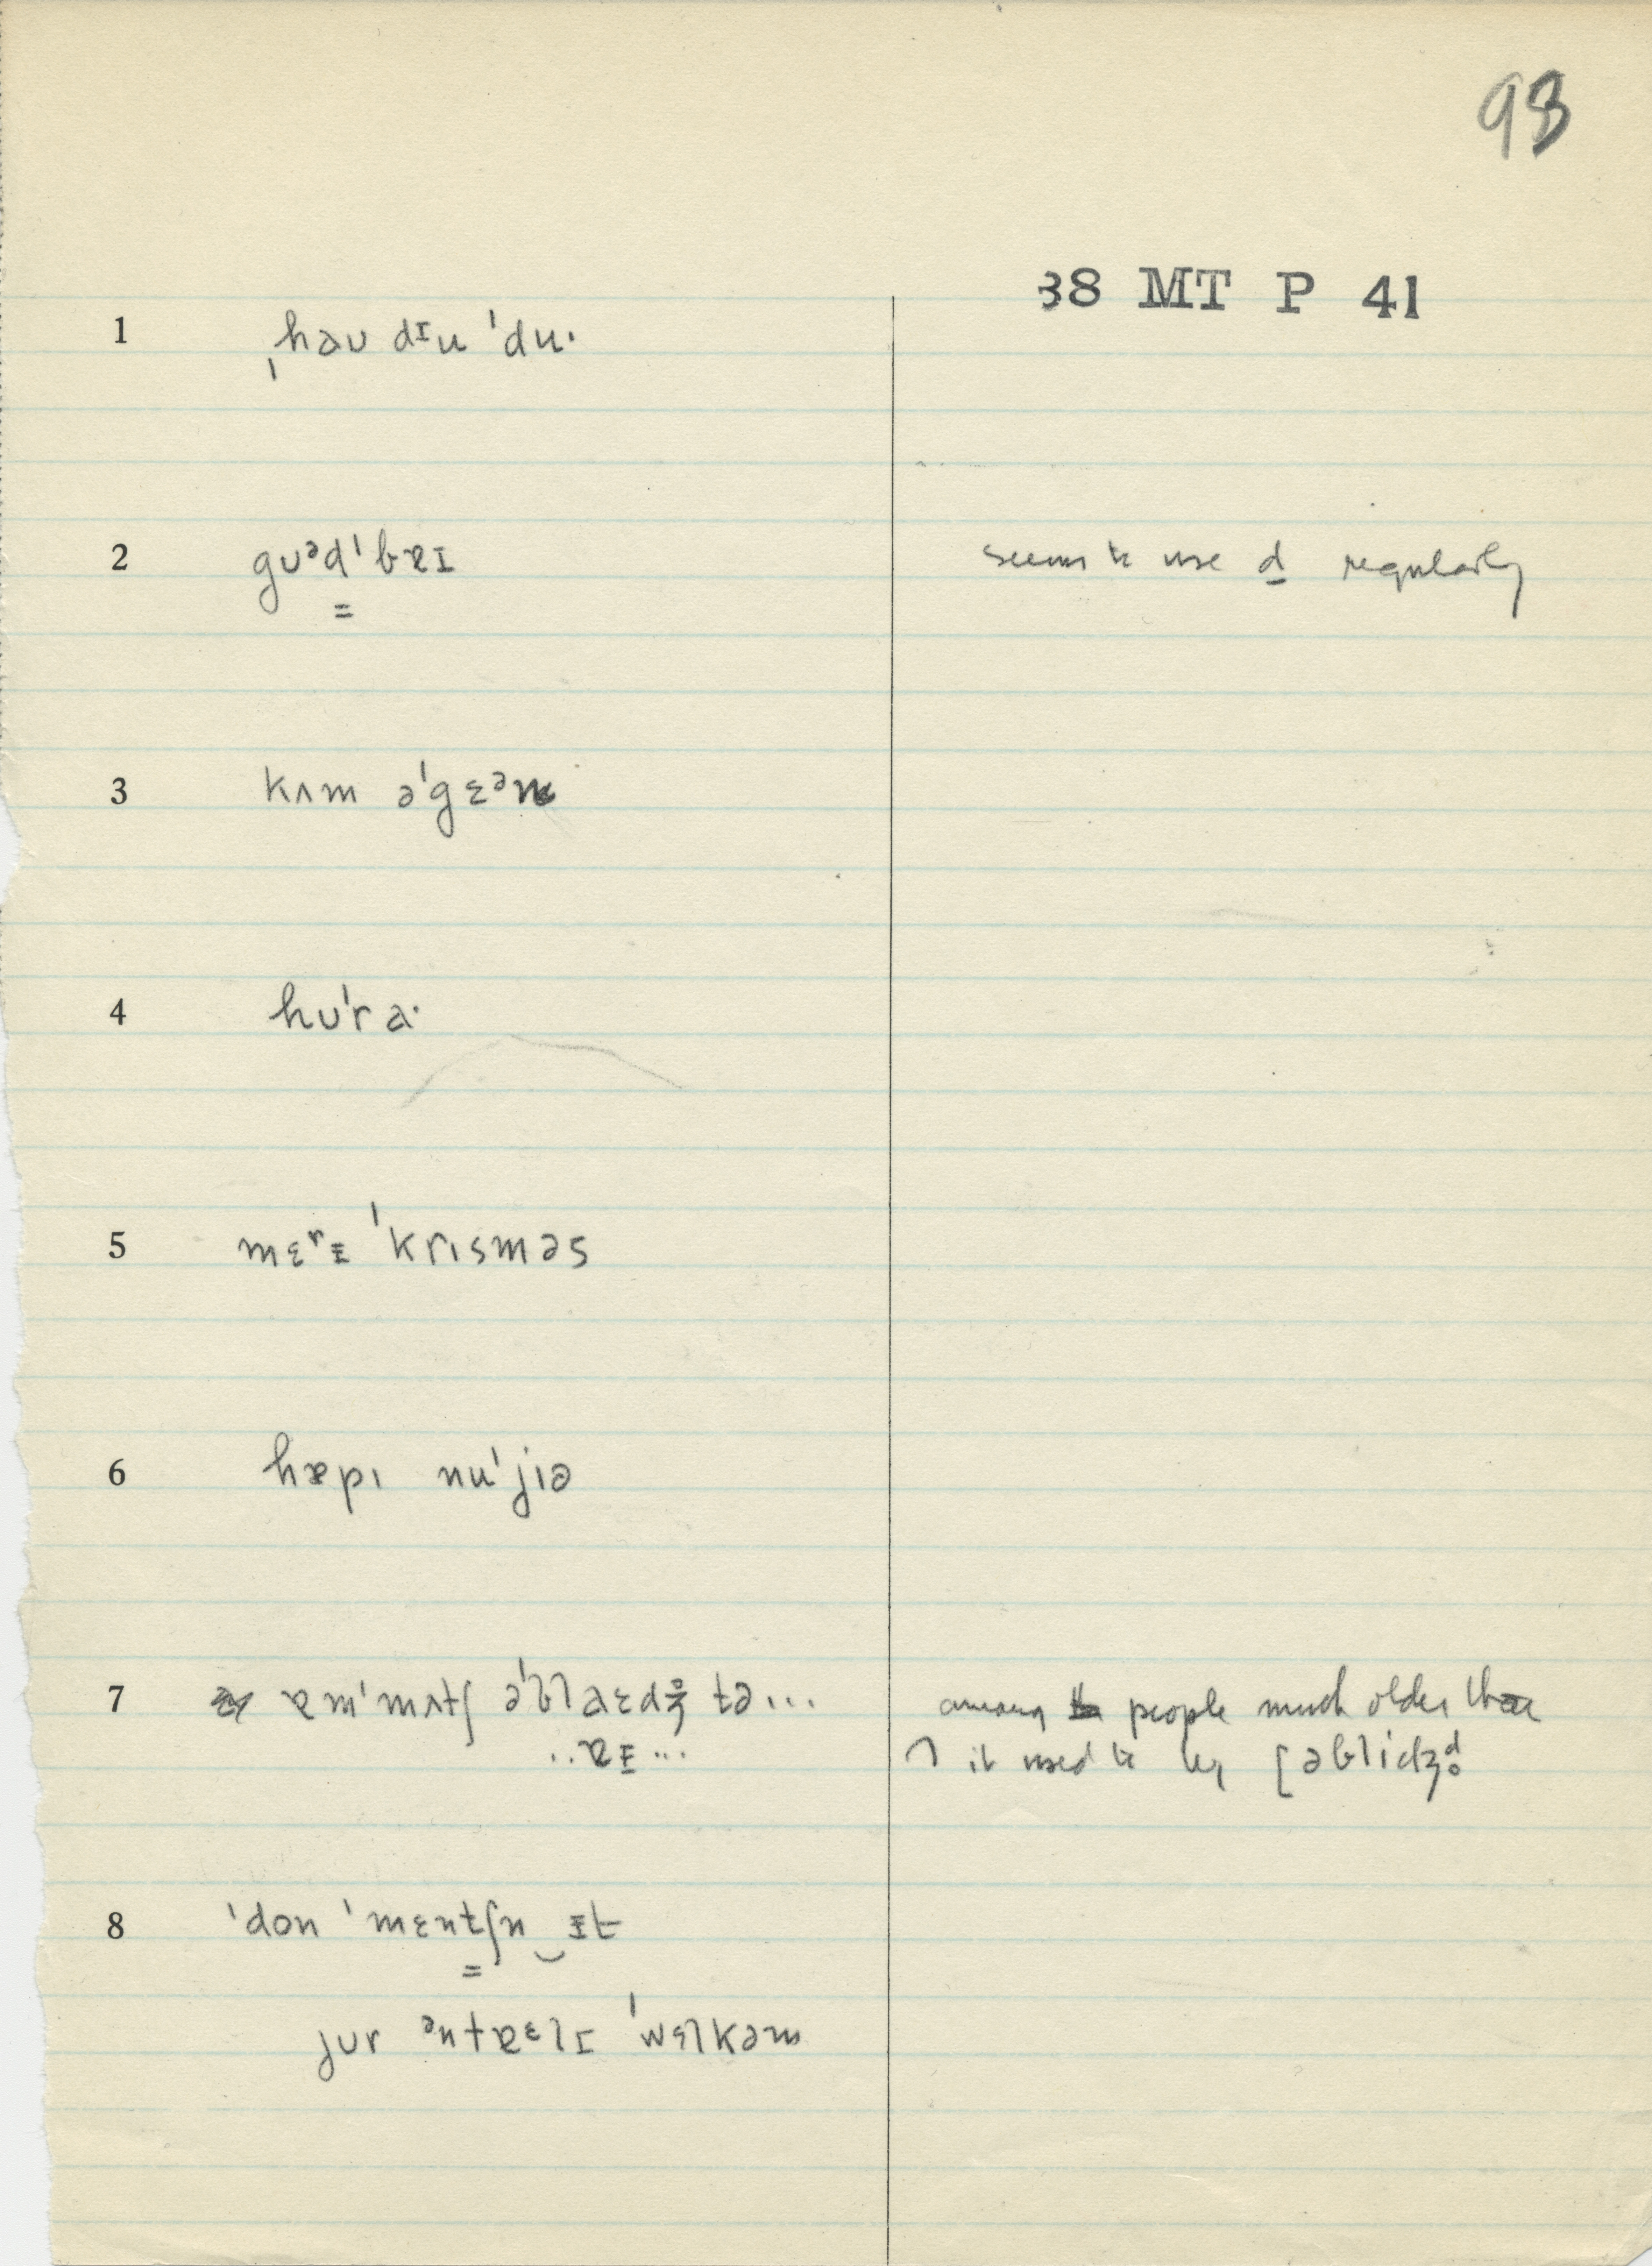 98
38 MT P 41
1 ˌhəʊ dɪu ˈdu·
2 gʊᵊdˈbɐɪ seems to use d regularly
3 kʌm əˈgɛᵊn
4 hʊˈra·
5 mɛʳɪ ˈkrɪsməs
6 hæpɪ nuˈjɪə
7 ɐmˈmʌtʃ əˈblaɛdʒ̊ tə... among people much older than
..ɐɪ... it used to be [əblidʒd̥
8 ˈdon ˈmɛntʃn‿ɪt
jʊr ᵊntɐᵋlɪ ˈwɛlkəm